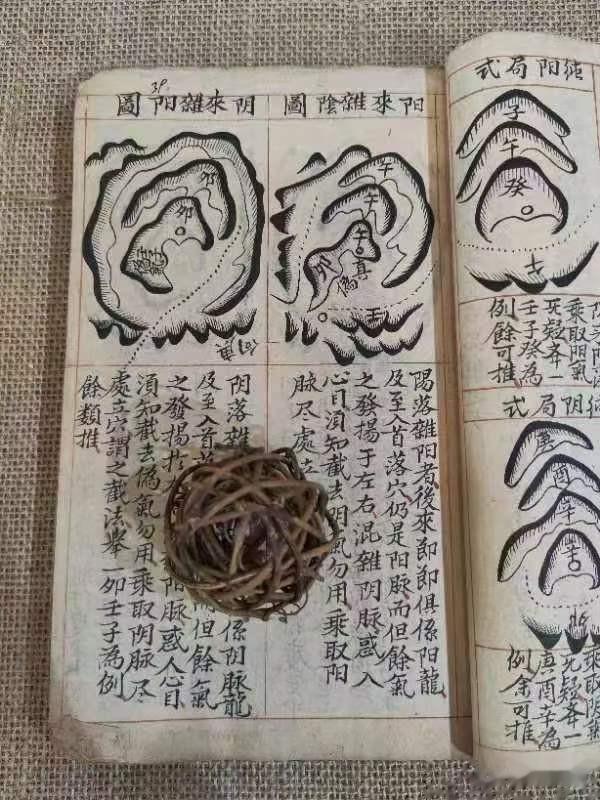 純阳局式
子
午
癸
乘取阳氣
壬子癸為
例餘可推
純阴局式
酉
辛
乘取阴氣
庚酉辛為
例余可推
阳來雜陰圖
午
午
午
真
卯
偽
壬
陽落雜阳者後來即即俱係阳龍
及至入首落穴仍是阳脉而但餘氣
之發揚于左右混雜阴脉惑入
心目須知截去阴氣勿用乘取阳
脉尽處立
39.
阴來雜阳圖
卯
卯
阴落雜 係阴脉龍
及至入首 而但餘氣
之發揚於 阳脉惑人心目
須知截去偽氣勿用乘取阴脉尽
處立穴謂之截法举一卯壬子為例
餘類推